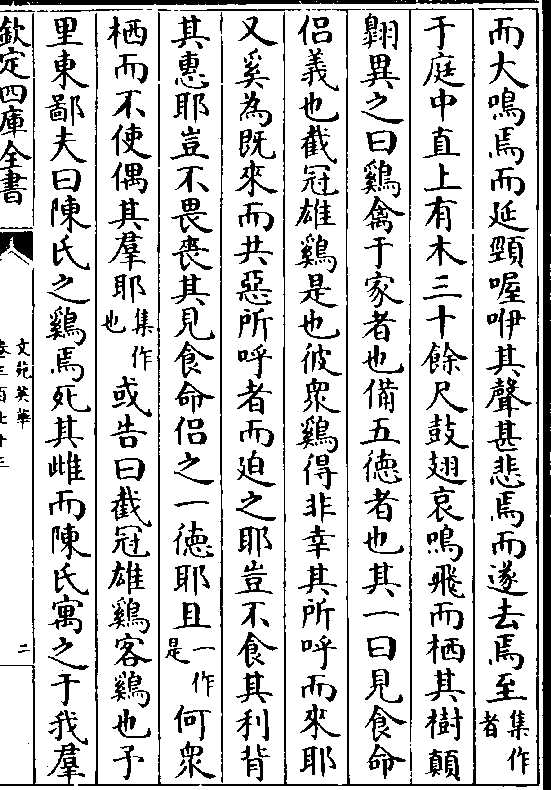 而大鳴焉而延頸喔咿其聲甚悲焉而遂去焉至集作者
于庭中直上有木三十餘尺鼓翅哀鳴飛而栖其樹顛
翺異之曰鷄禽于家者也備五德者也其一曰見食命
侣義也截冠雄鷄是也彼衆鷄得非幸其所呼而來耶
又奚為既來而共惡所呼者而廹之耶豈不食其利背
其惠耶豈不畏喪其見食命侣之一德耶且一作是何衆
栖而不使偶其羣耶集作也或告曰截冠雄鷄客鷄也予
里東鄙夫曰陳氏之鷄焉死其雌而陳氏寓之于我羣
欽定四庫全書
文苑英華
卷三百七十三
二